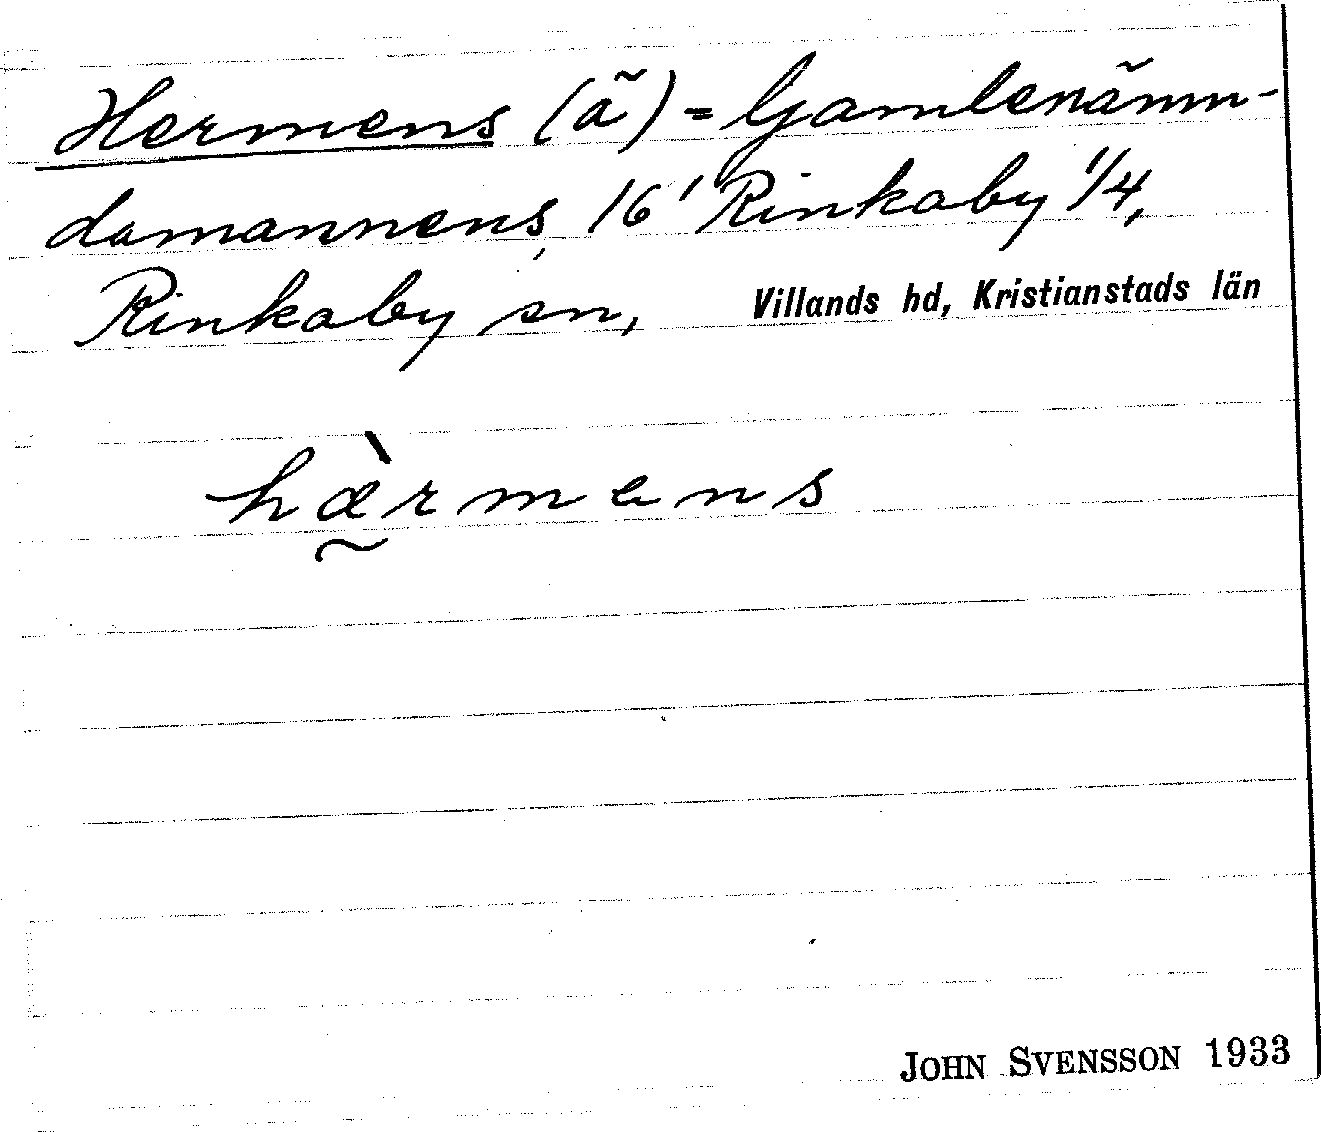 Hermens (ä) = Gamlenämn-
damannens, 16¹ Rinkaby 1/4,
Rinkaby sn, Villands hd, Kristianstads län
hæ̰̀rmens
JOHN SVENSSON 1933